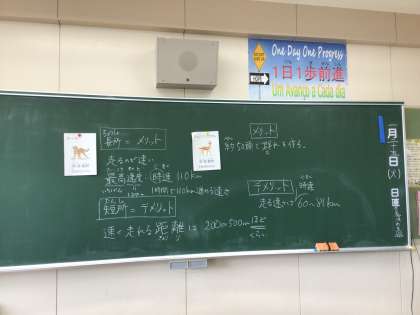 One Day One Progress
1日1歩前進
Um Avanço a Cada dia
長所=メリット
走るのが速い
最高速度は時速110km
1時間で110km進める速さ
短所=デメリット
速く走れる距離は200m~500mほど
メリット
約50頭で群れを作る。
デメリット
走る速さは60~81km
時速
一月
日(火)
日直